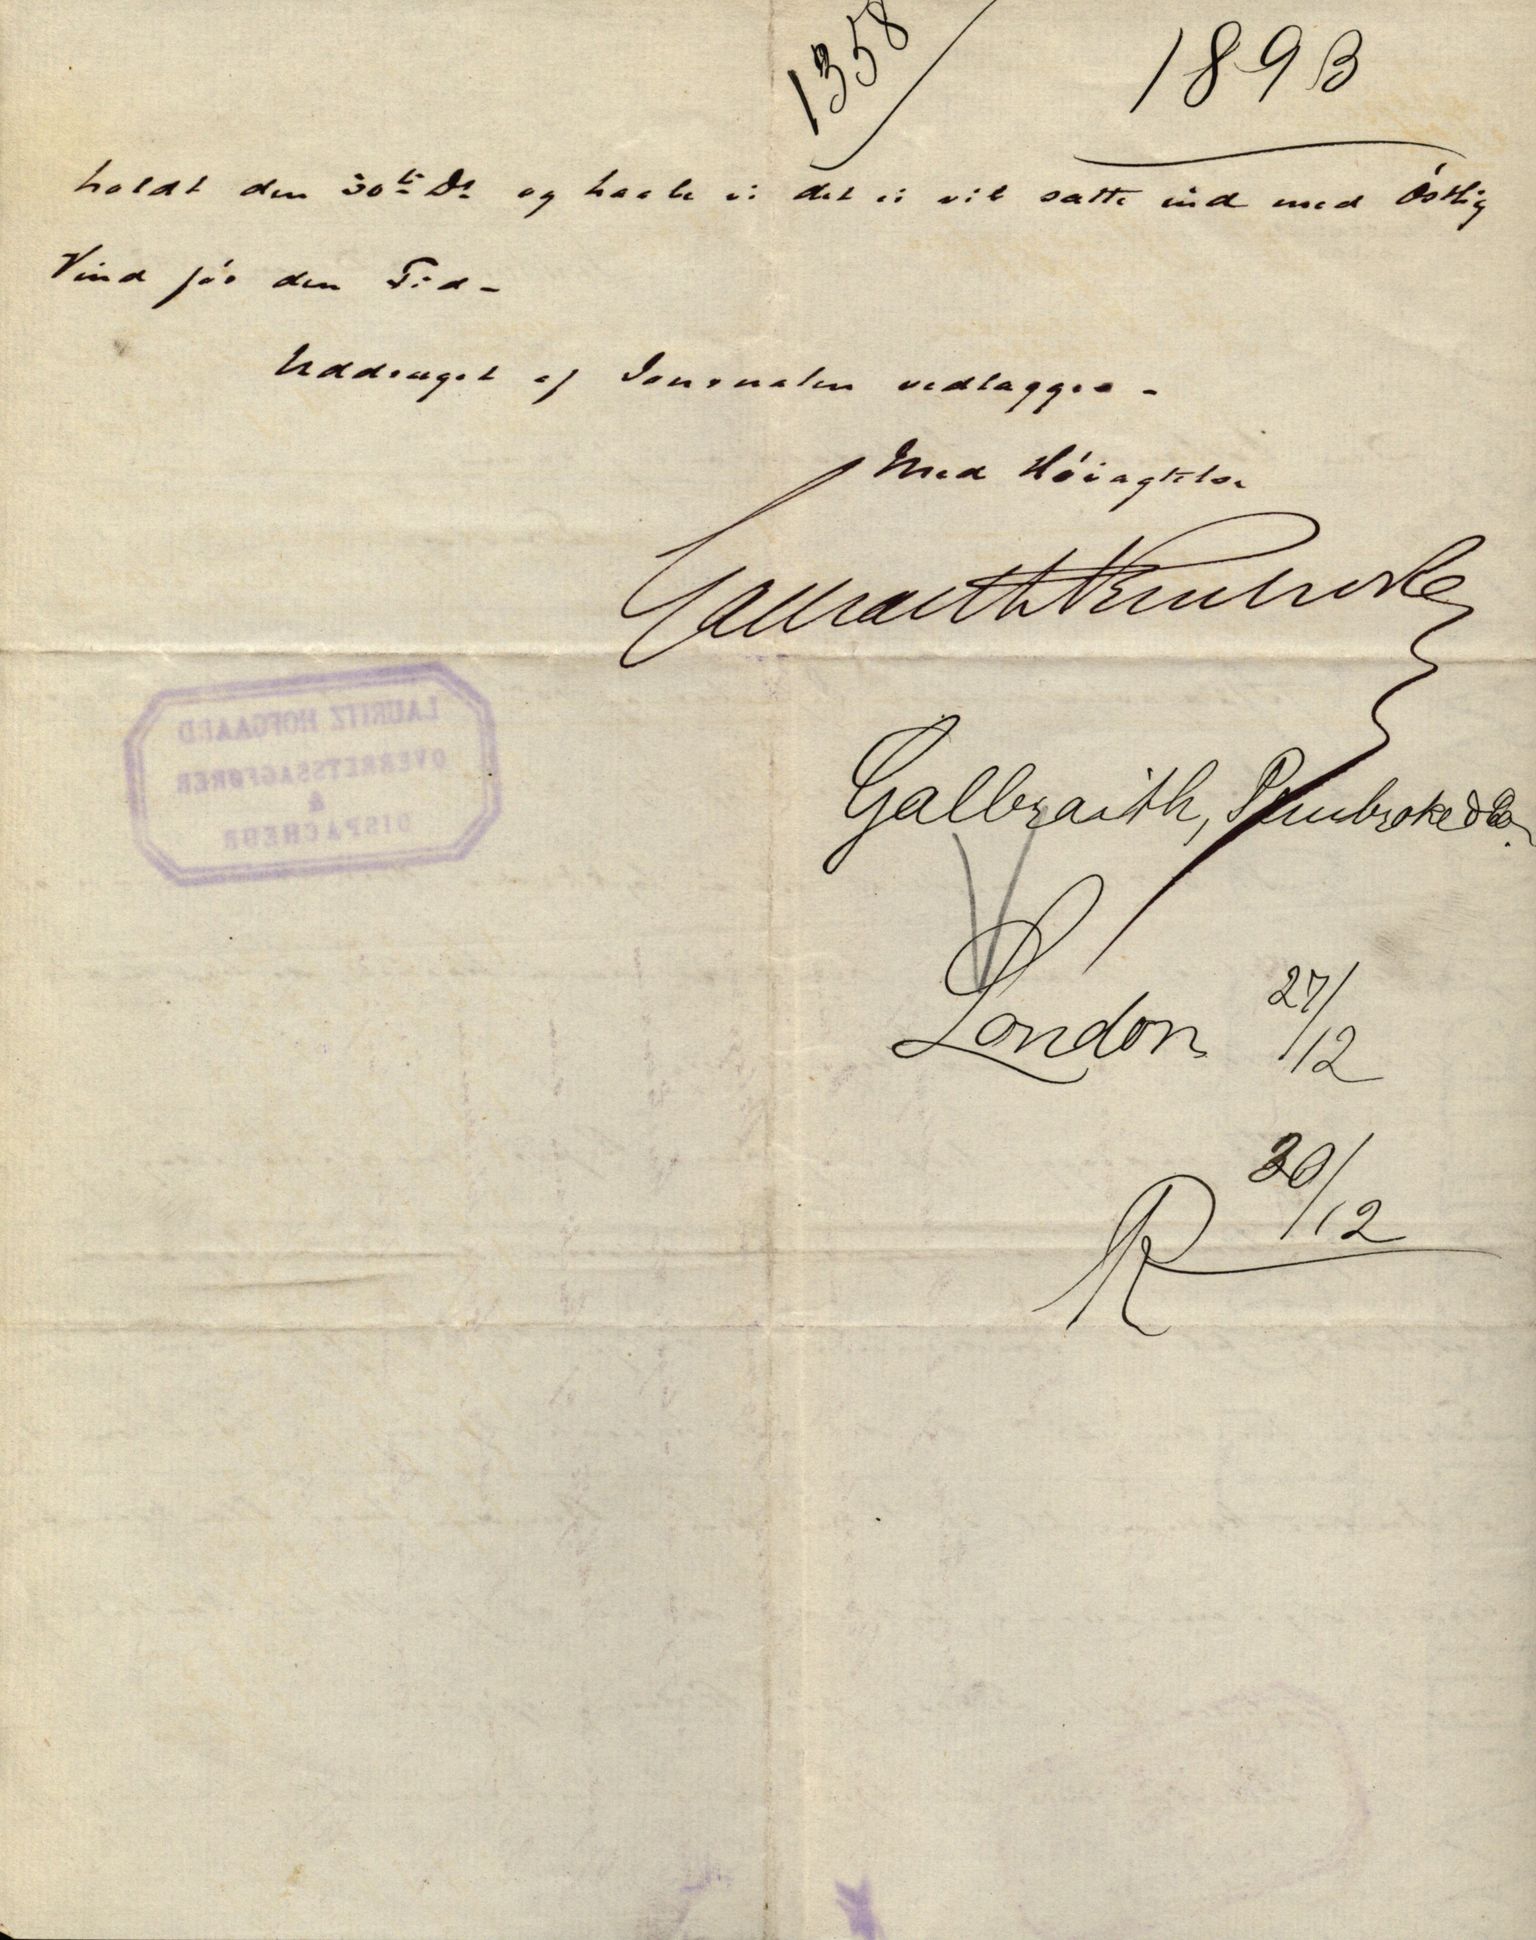 1358
1893
holdt den 30te Ds og haabe vi det ei vil sætte ind med Östlig
Vind för den Tid -
Uddraget af Journalen vedlægges -
Med Höiagtelse
Galbraith Pembroke
LAURITZ HOFGAARD
OVERRETSSAGFØRER
&
DISPACHEUR
Galbraith, Pembroke & Co.
London 27/12
R 30/12